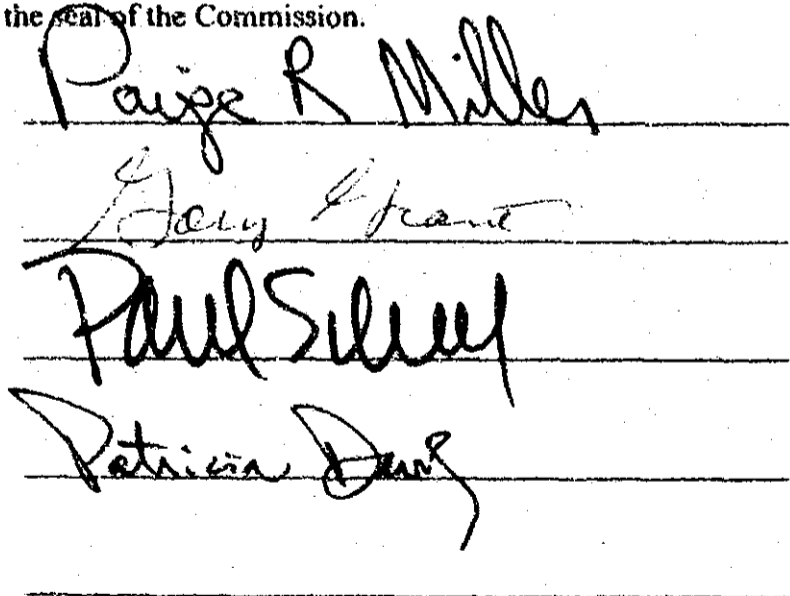 the seal of the Commission.
Paige R Miller
Gary Grant
Paul Schell
Patricia Davis